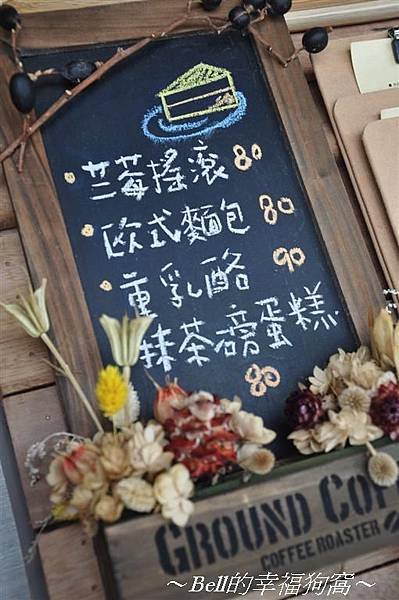 三莓搖滾 80
歐式麵包 80
重乳酪 90
抹茶磅蛋糕
80
GROUND COF
COFFEE ROASTER
～Bell的幸福狗窩～